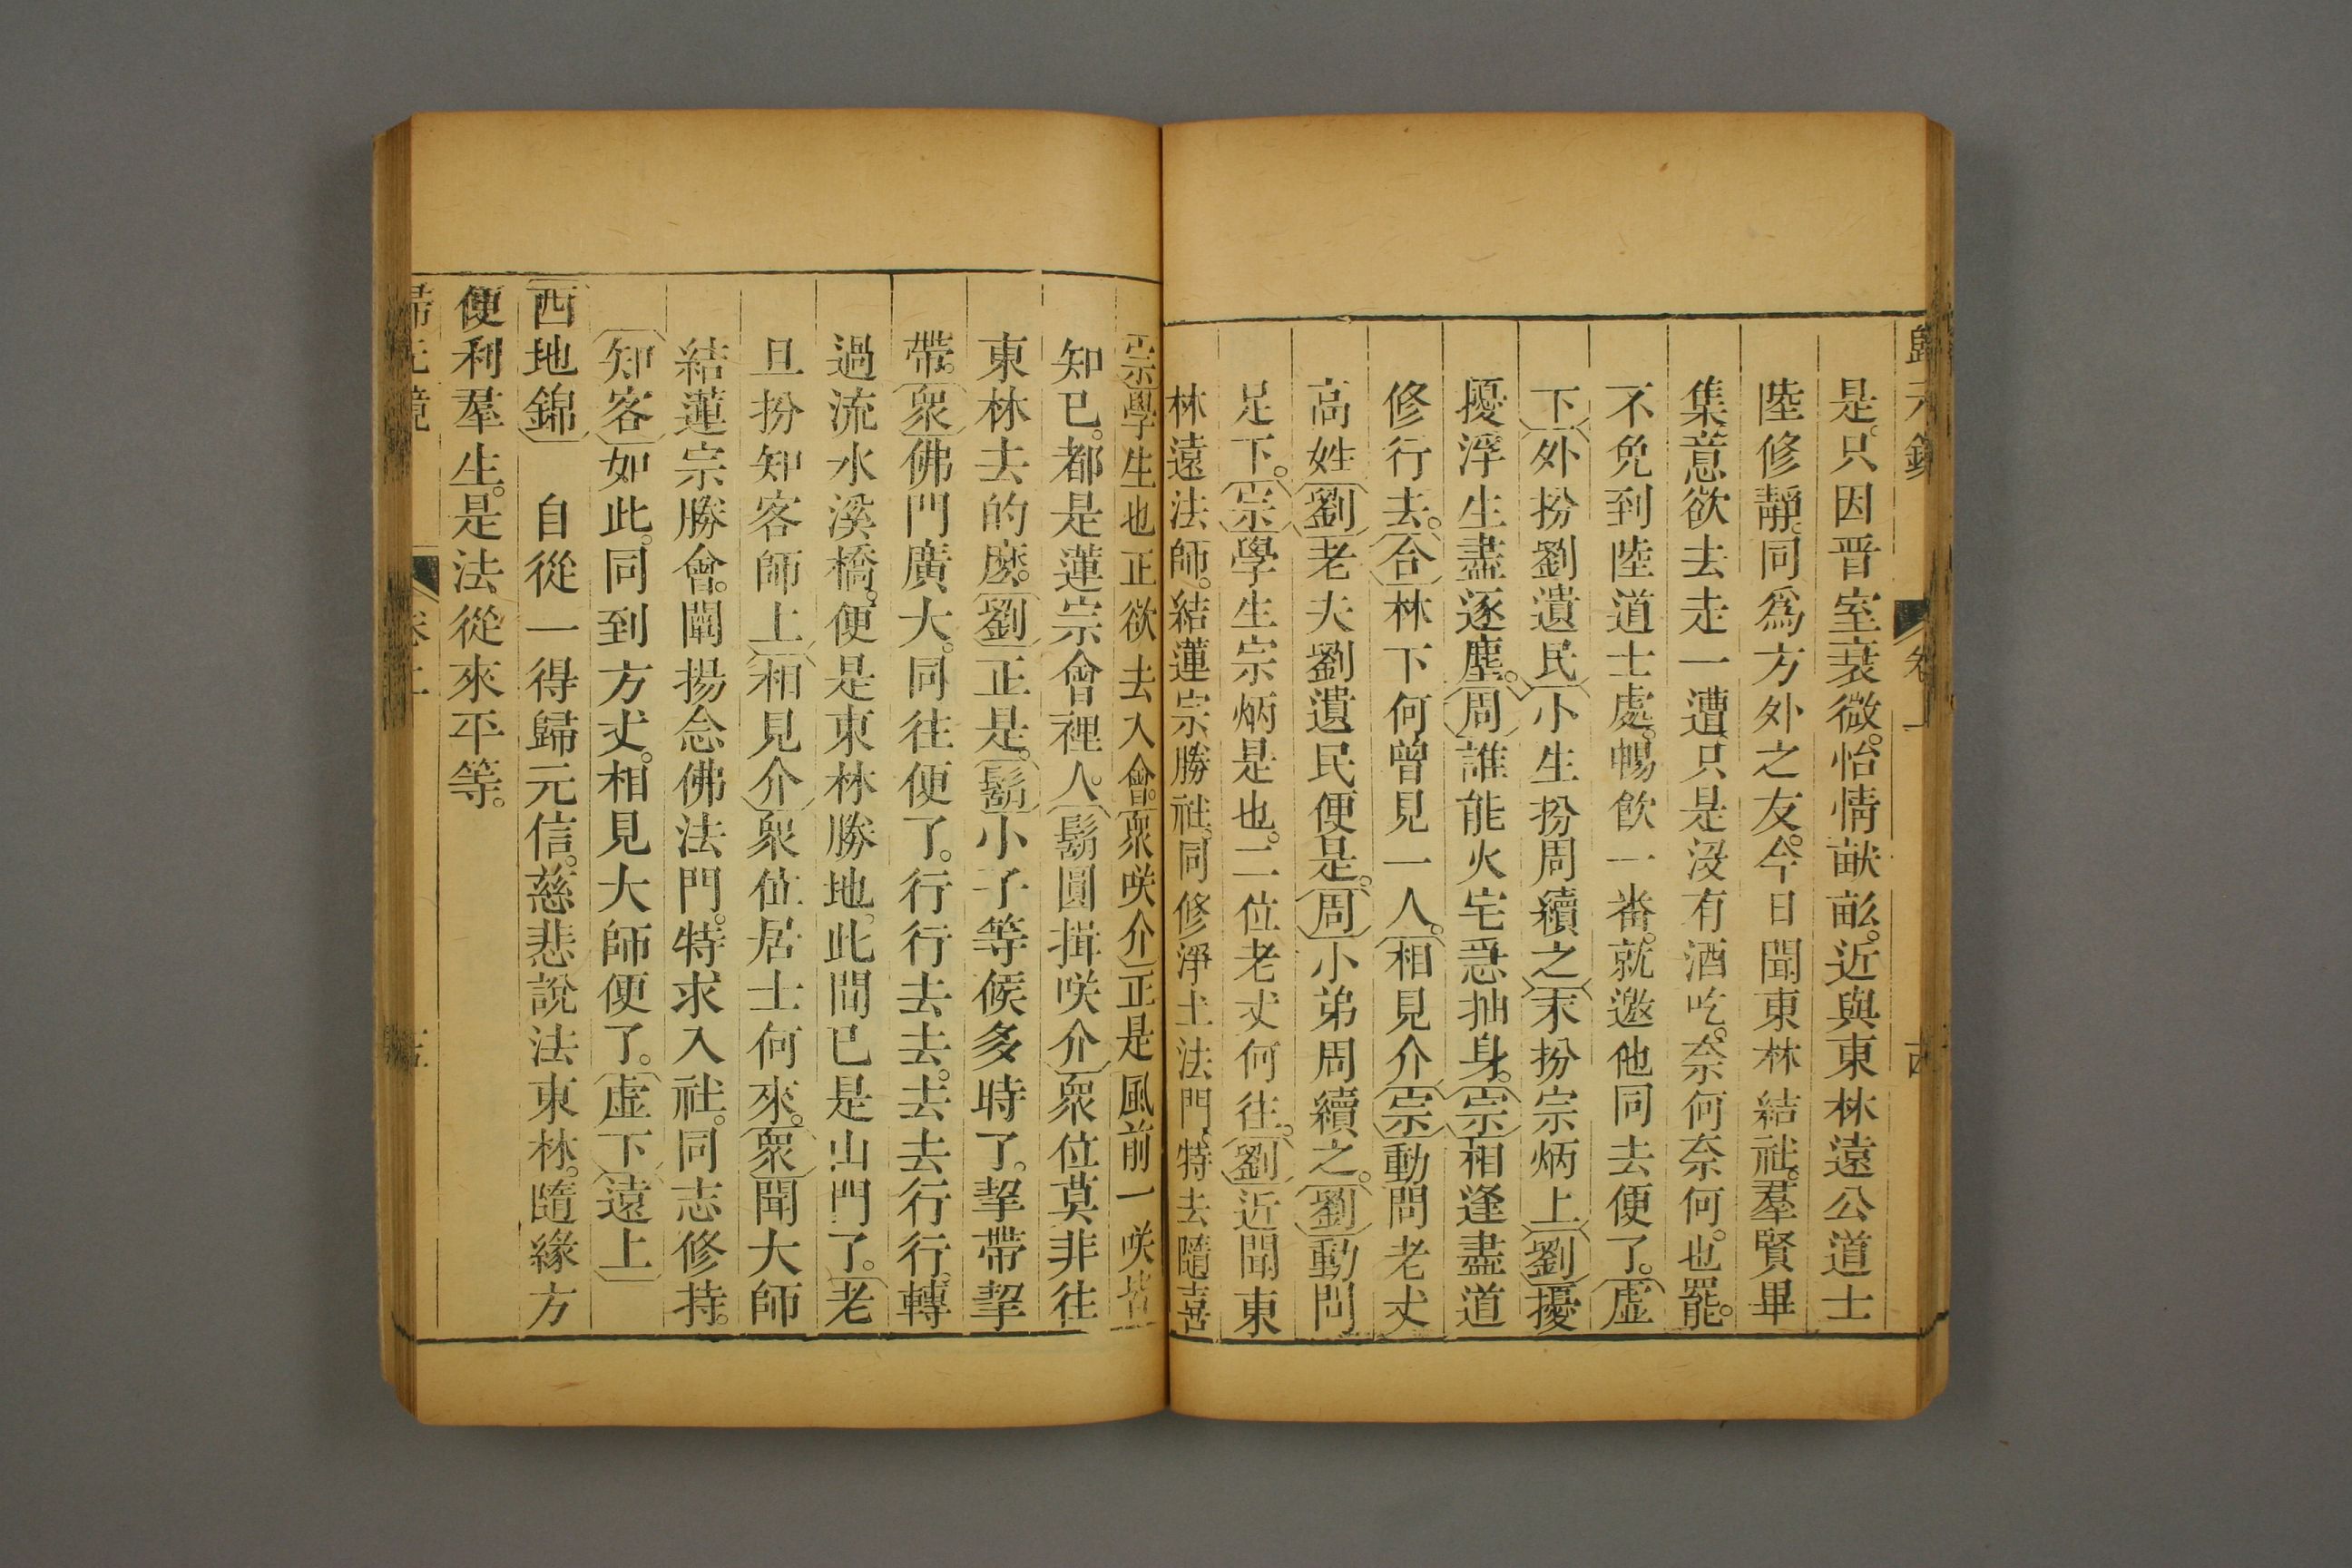 歸元鏡 卷上
是。只因晋室衰微。怡情畎畝。近與東林遠公道士
陸修靜。同爲方外之友。今日聞東林結社。羣賢畢
集意欲去走一遭。只是没有酒吃。奈何奈何。也罷。
不免到陸道士處。暢飲一番。就邀他同去便了。虚
下外扮劉遺民小生扮周續之末扮宗炳上劉擾
擾浮生盡逐塵。周誰能火宅急抽身。宗相逢盡道
修行去。合林下何曾見一人。相見介宗動問老丈
高姓劉老夫劉遺民便是。周小弟周續之。劉動問
足下。宗學生宗炳是也。二位老丈何往。劉近聞東
林遠法師。結蓮宗勝社。同修淨土法門。特去隨喜
宗學生也正欲去入會。衆咲介正是風前一咲皆
知已。都是蓮宗會裡人。鬍圓揖咲介衆位莫非往
東林去的麽。劉正是。鬍小子等候多時了。挈帶挈
帶。衆佛門廣大。同往便了。行行去去。去去行行。轉
過流水溪橋。便是東林勝地。此間已是山門了。老
旦扮知客師上相見介衆位居士何來。衆聞大師
結蓮宗勝會。闡揚念佛法門。特求入社。同志修持。
知客如此。同到方丈。相見大師便了。虚下遠上
西地錦 自從一得歸元信。慈悲說法東林。隨緣方
便利羣生。是法從來平等。
歸元鏡 卷上